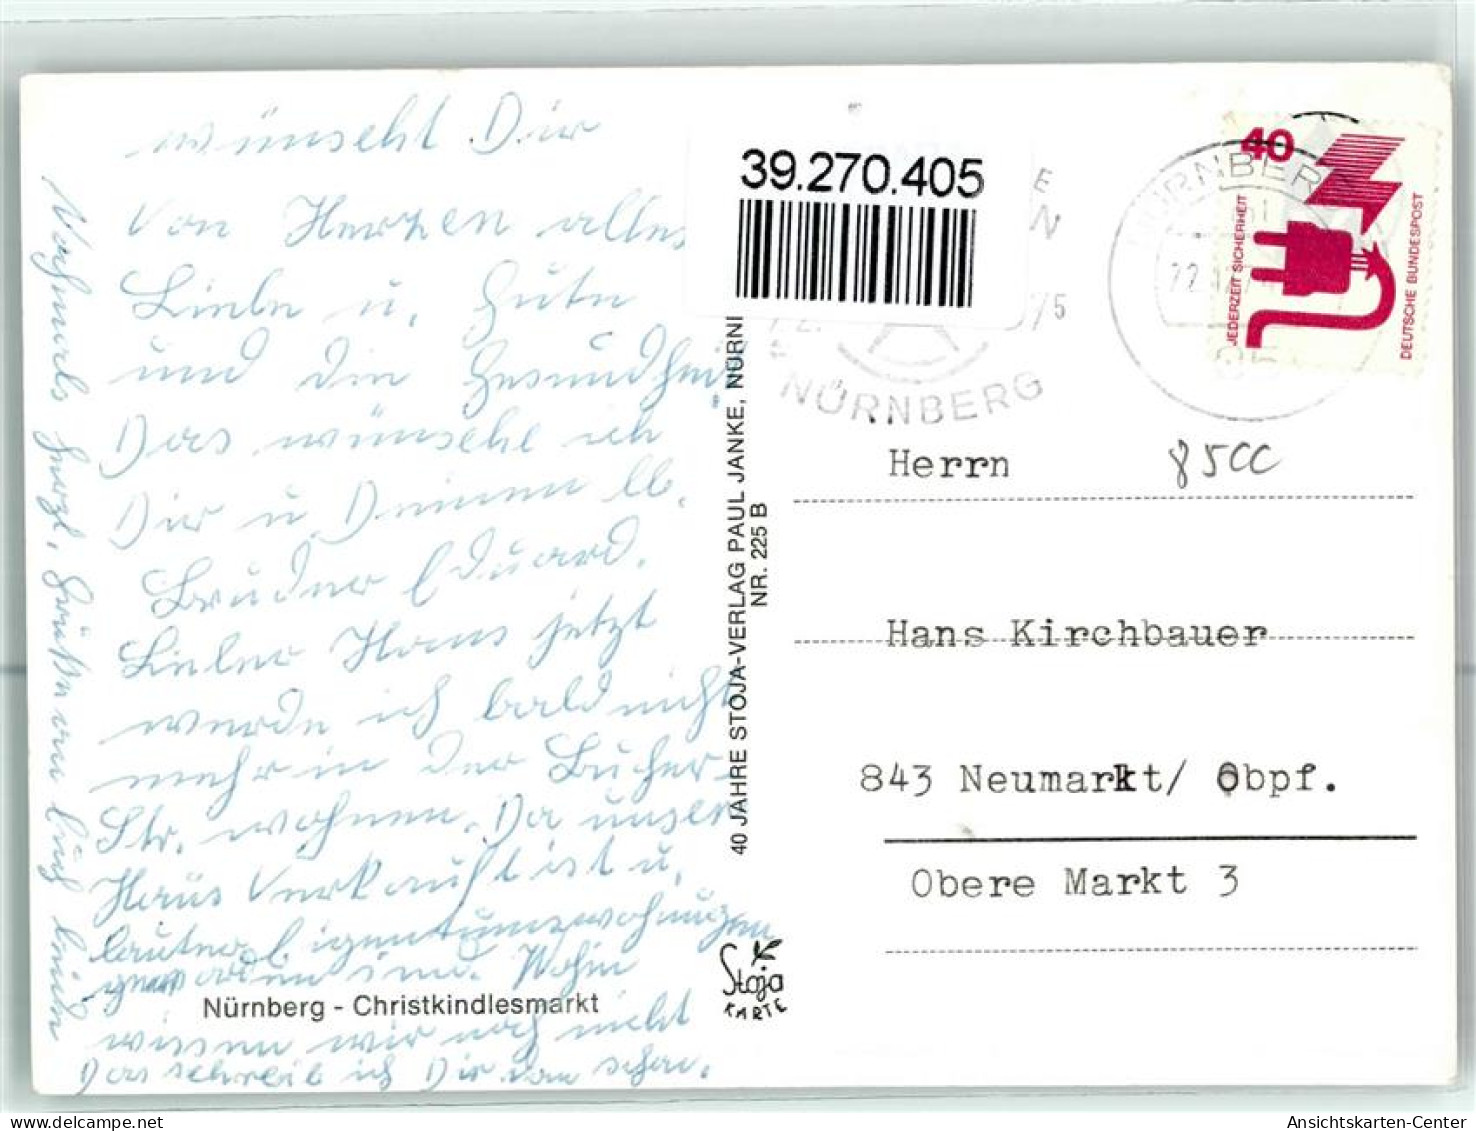 wünscht Dir
Von Herzen alles
Liebe u. Gute
und die Gesundheit
Das wünsche ich
Dir u. Deinem lb.
Bruder Eduard.
Lieber Hans jetzt
werde ich bald nicht
mehr in der Bucher-
Str. wohnen. Da unser
Haus Verkauft ist u.
lauter Eigentumswohnungen
geworden sind. Wohin
Nürnberg - Christkindlesmarkt
wissen wir noch nicht
Das schreib ich Dir dan schon.
Nochmals herzl. Grüße von
39.270.405
40 JAHRE STOJA-VERLAG PAUL JANKE, NÜRN
NR. 225 B
Stoja
KARTE
E
N
75
NÜRNBERG
NÜRNBERG
40
JEDERZEIT SICHERHEIT
DEUTSCHE BUNDESPOST
85
Herrn
8500
Hans Kirchbauer
843 Neumarkt/ Obpf.
Obere Markt 3
Ansichtskarten-Center